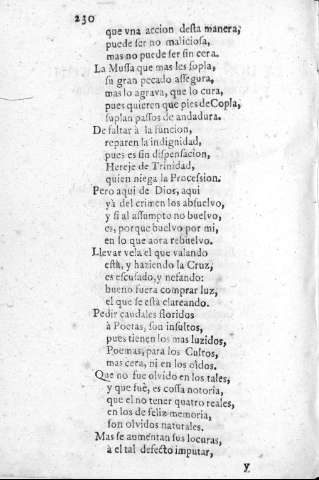 230
que vna accion desta manera,
puede ser no maliciosa,
mas no puede ser sin cera.
La Mussa que mas les sopla,
su gran pecado assegura,
mas lo agrava, que lo cura,
pues quieren que pies de Copla,
suplan passos de andadura.
De faltar à la funcion,
reparen la indignidad,
pues es sin dispensacion,
Hereje de Trinidad,
quien niega la Procession.
Pero aqui de Dios, aqui
yà del crimen los absuelvo,
y si al assumpto no buelvo,
es, porque buelvo por mi,
en lo que aora rebuelvo.
Llevar vela el que valando
està, y haziendo la Cruz,
es escusado, y nefando:
bueno fuera comprar luz,
el que se està clareando.
Pedir caudales floridos
à Poetas, son insultos,
pues tienen los mas luzidos,
Poemas, para los Cultos,
mas cera, ni en los oìdos.
Que no fue olvido en los tales,
y que fuè, es cossa notoria,
que el no tener quatro reales,
en los de feliz memoria,
son olvidos naturales.
Mas se aumentan sus locuras,
à el tal defecto imputar,
y